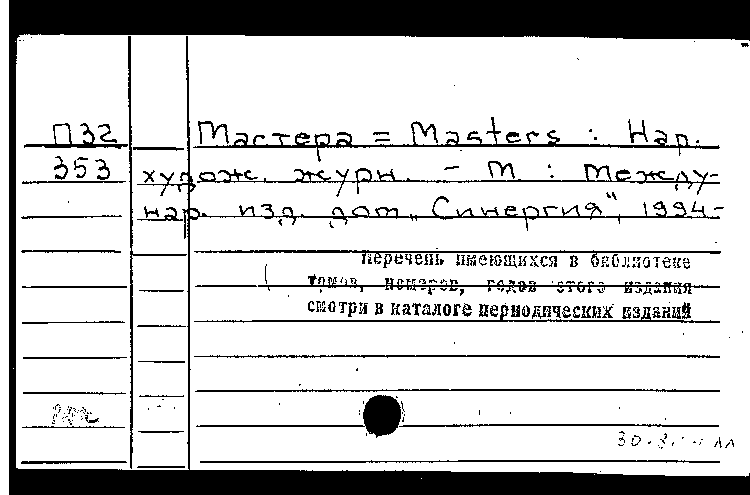 П32 Мастера = Masters : Нар.
353 худож. журн. – М. : Между-
нар. изд. дом „Синергия", 1994-
Перечень имеющихся в библиотеке
томов, номеров, годов этого издания
смотри в каталоге периодических изданий